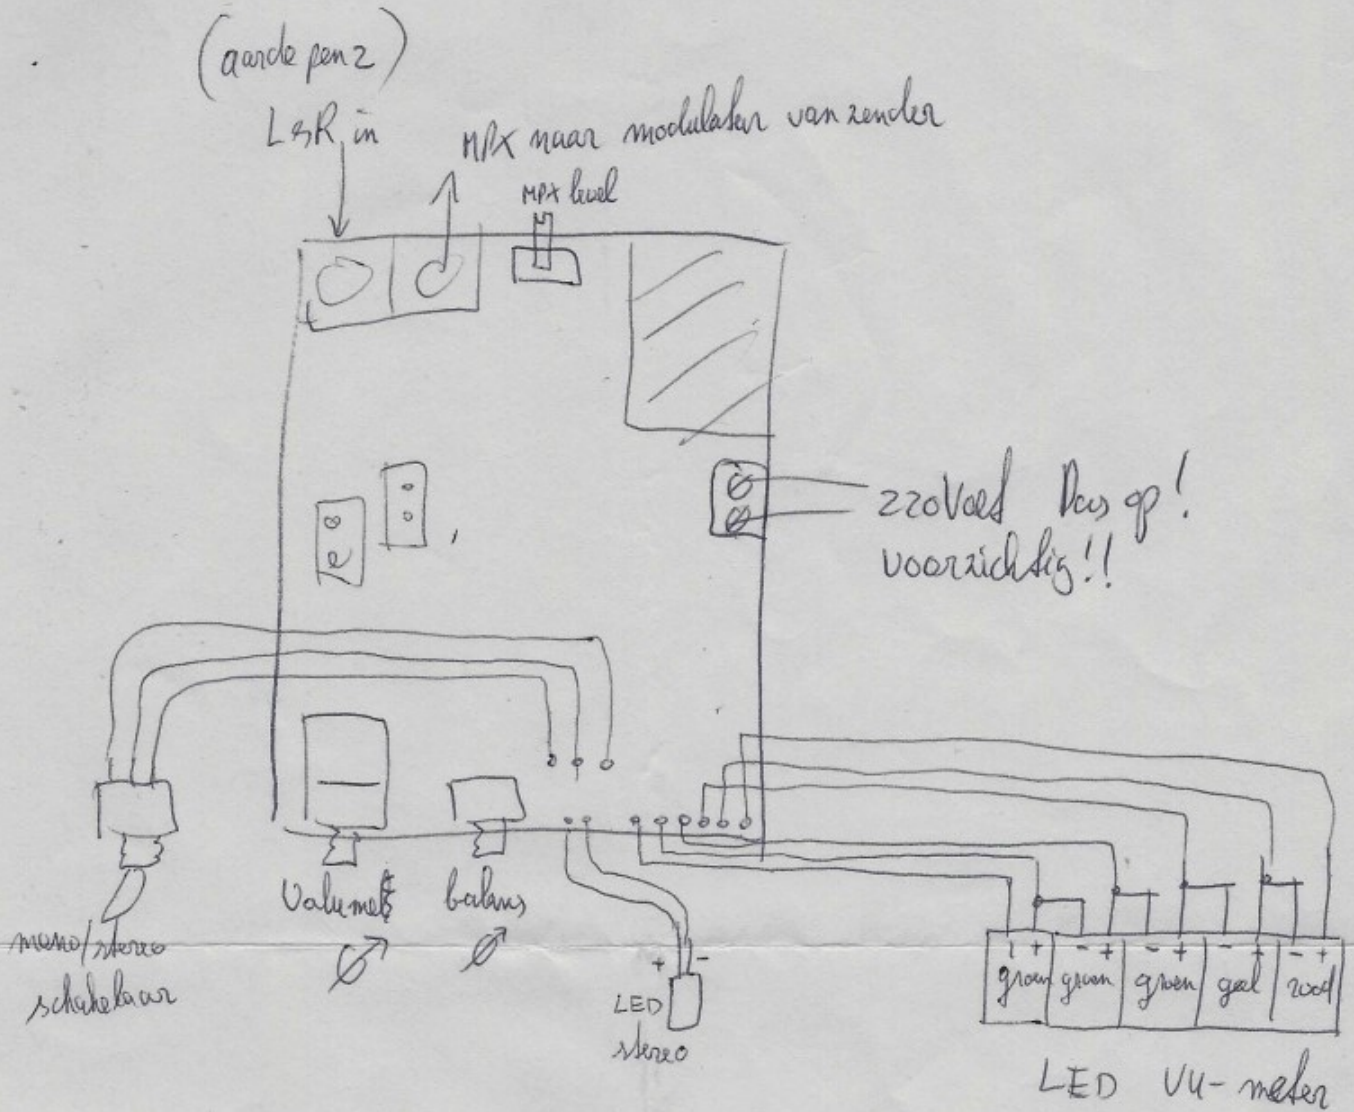 (aarde pen 2)
L & R in
MPX naar modulator van zender
MPX level
220 Volt Pas op!
voorzichtig!!
Volume
balans
mono/stereo
schakelaar
+ -
LED
stereo
- + - + - + - + - +
groen groen groen geel rood
LED VU-meter